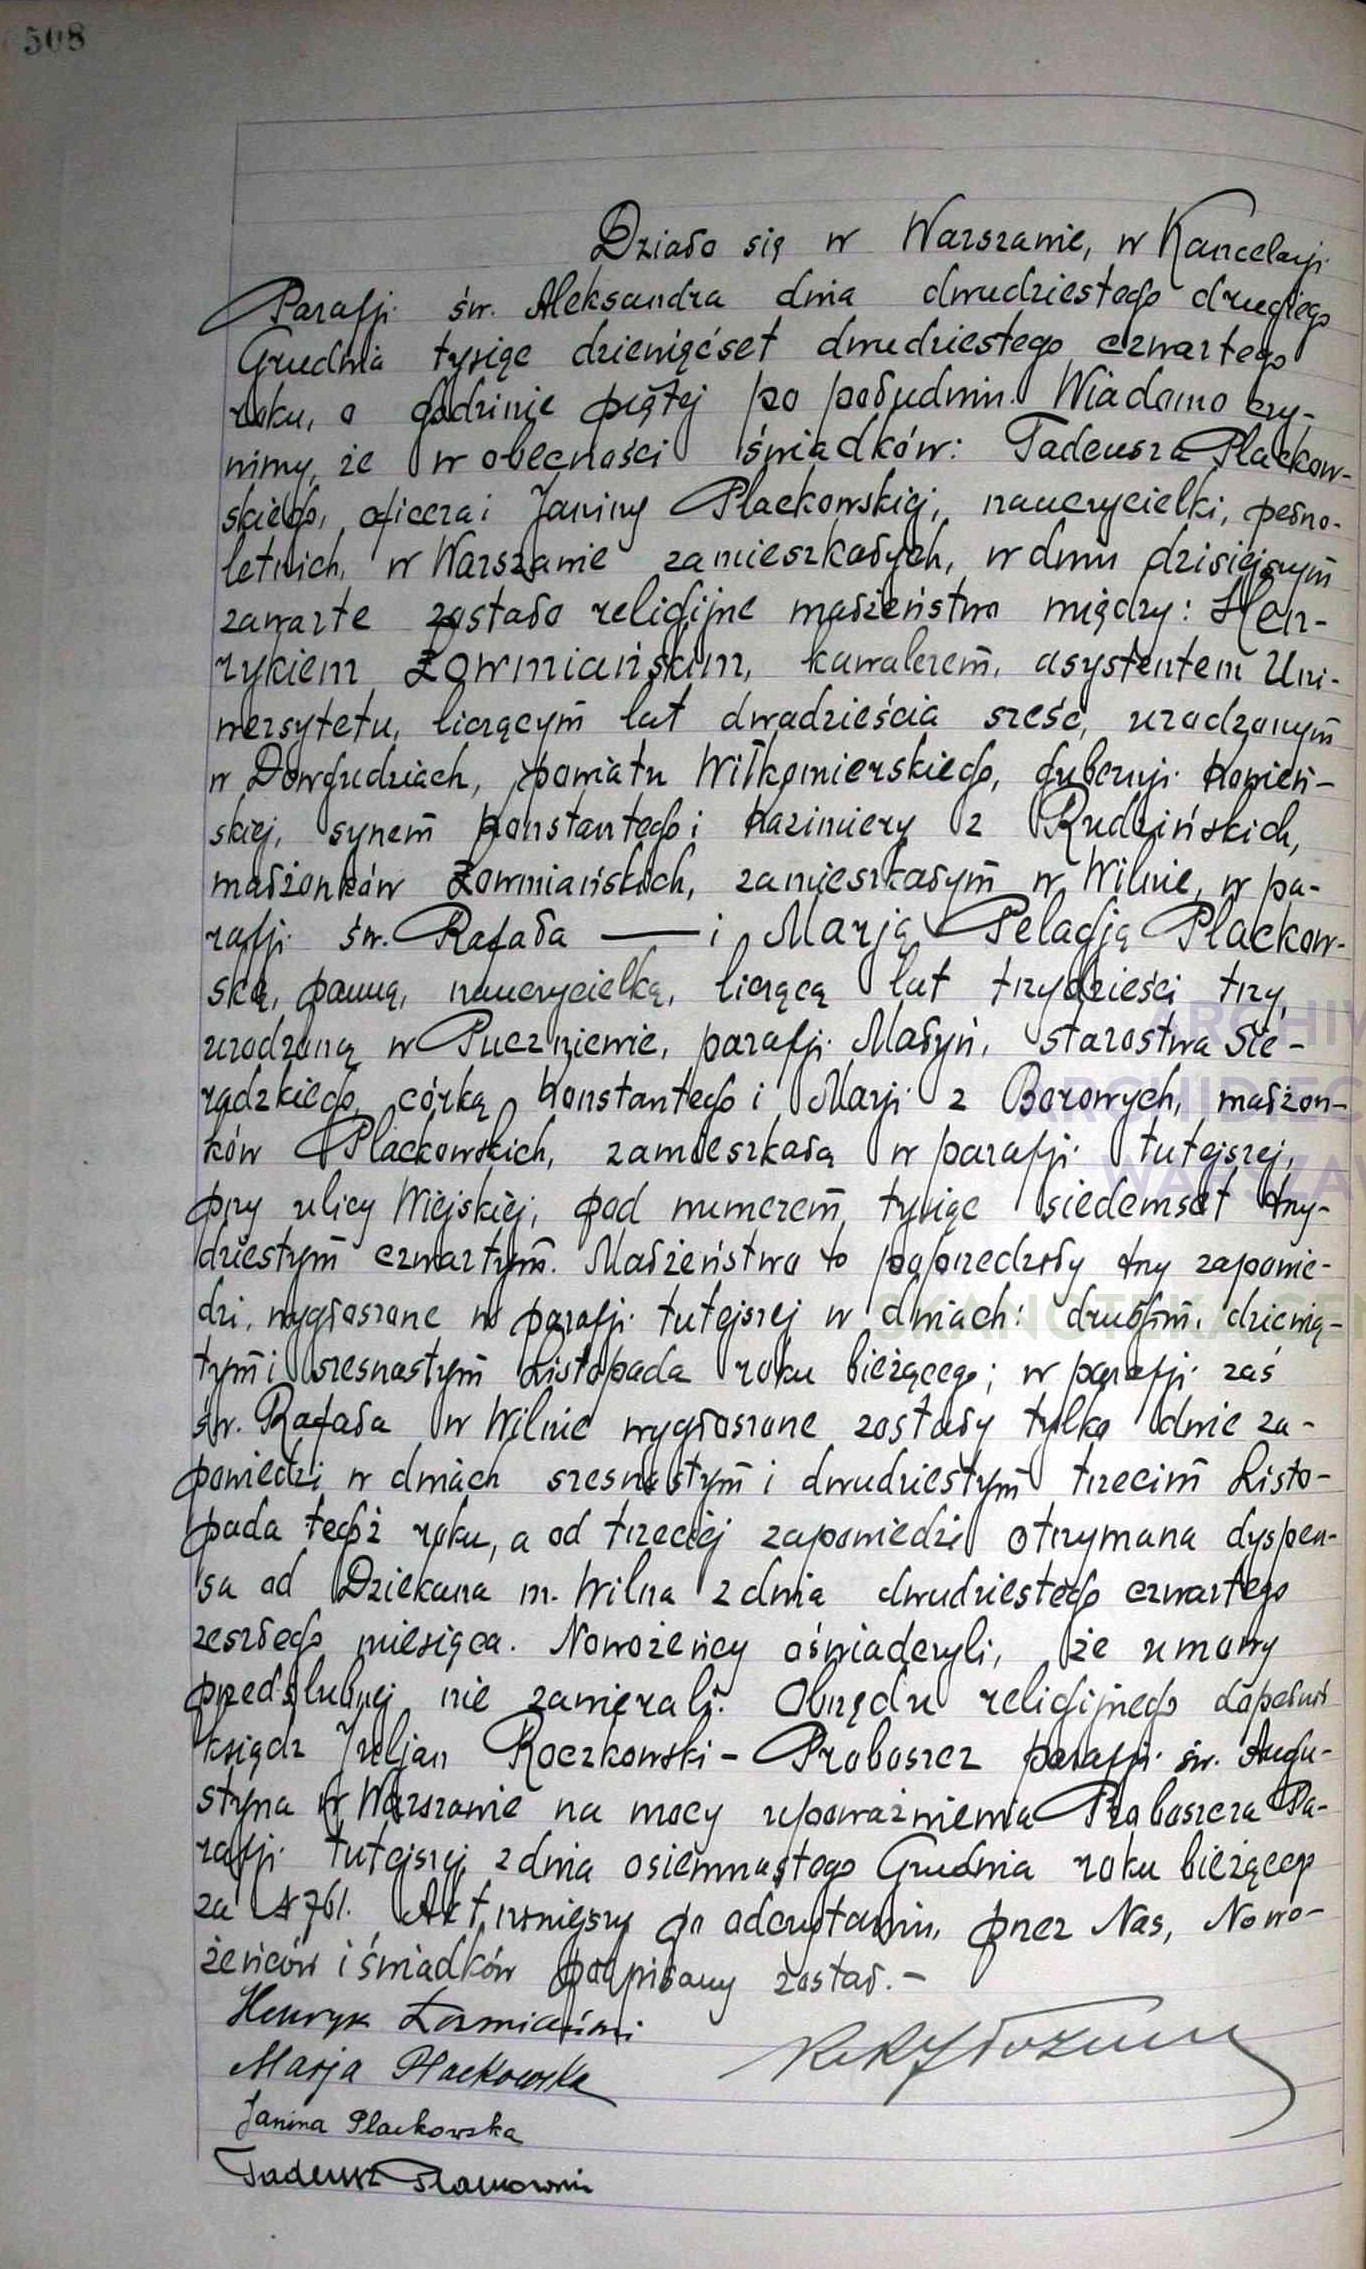 508
Działo się w Warszawie, w Kancelarji
Parafji św. Aleksandra dnia dwudziestego drugiego
Grudnia tysiąc dziewięćset dwudziestego czwartego
roku, o godzinie piątej po południu. Wiadomo czy-
nimy, że w obecności świadków: Tadeusza Plackow-
skiego, oficera i Janiny Plackowskiej, nauczycielki, pełno-
letnich, w Warszawie zamieszkałych, w dniu dzisiejszym
zawarte zostało religijne małżeństwo między: Hen-
rykiem Łowmiańskim, kawalerem, asystentem Uni-
wersytetu, liczącym lat dwadzieścia sześć, urodzonym
w Dowgudziach, powiatu Wiłkomierskiego, gubernji Kowień-
skiej, synem Konstantego i Kazimiery z Rudzińskich,
małżonków Łowmiańskich, zamieszkałym w Wilnie, w pa-
rafji św. Rafała — i Marją Pelagją Plackow-
ską, panną, nauczycielką, liczącą lat trzydzieści trzy,
urodzoną w Puczniewie, parafji Małyń, starostwa Sie-
radzkiego, córką Konstantego i Marji z Borowych, małżon-
ków Plackowskich, zamieszkałą w parafji tutejszej,
przy ulicy Wiejskiej, pod numerem tysiąc siedemset trzy-
dziestym czwartym. Małżeństwo to poprzedziły trzy zapowie-
dzi, wygłoszone w parafji tutejszej w dniach: drugim, dziewią-
tym i szesnastym Listopada roku bieżącego; w parafji zaś
św. Rafała w Wilnie wygłoszone zostały tylko dwie za-
powiedzi w dniach szesnastym i dwudziestym trzecim Listo-
pada tegoż roku, a od trzeciej zapowiedzi otrzymana dyspen-
sa od Dziekana m. Wilna z dnia dwudziestego czwartego
zeszłego miesiąca. Nowożeńcy oświadczyli, że umowy
przedślubnej nie zawierali. Obrzędu religijnego dopełnił
ksiądz Juljan Roczkowski - Proboszcz parafji św. Augu-
styna w Warszawie na mocy upoważnienia Proboszcza Pa-
rafji tutejszej z dnia osiemnastego Grudnia roku bieżącego
za № 761. Akt niniejszy po odczytaniu, przez Nas, Nowo-
żeńców i świadków podpisany został.-
Henryk Łowmiański
Marja Plackowska
Janina Plackowska
Tadeusz Plackowski